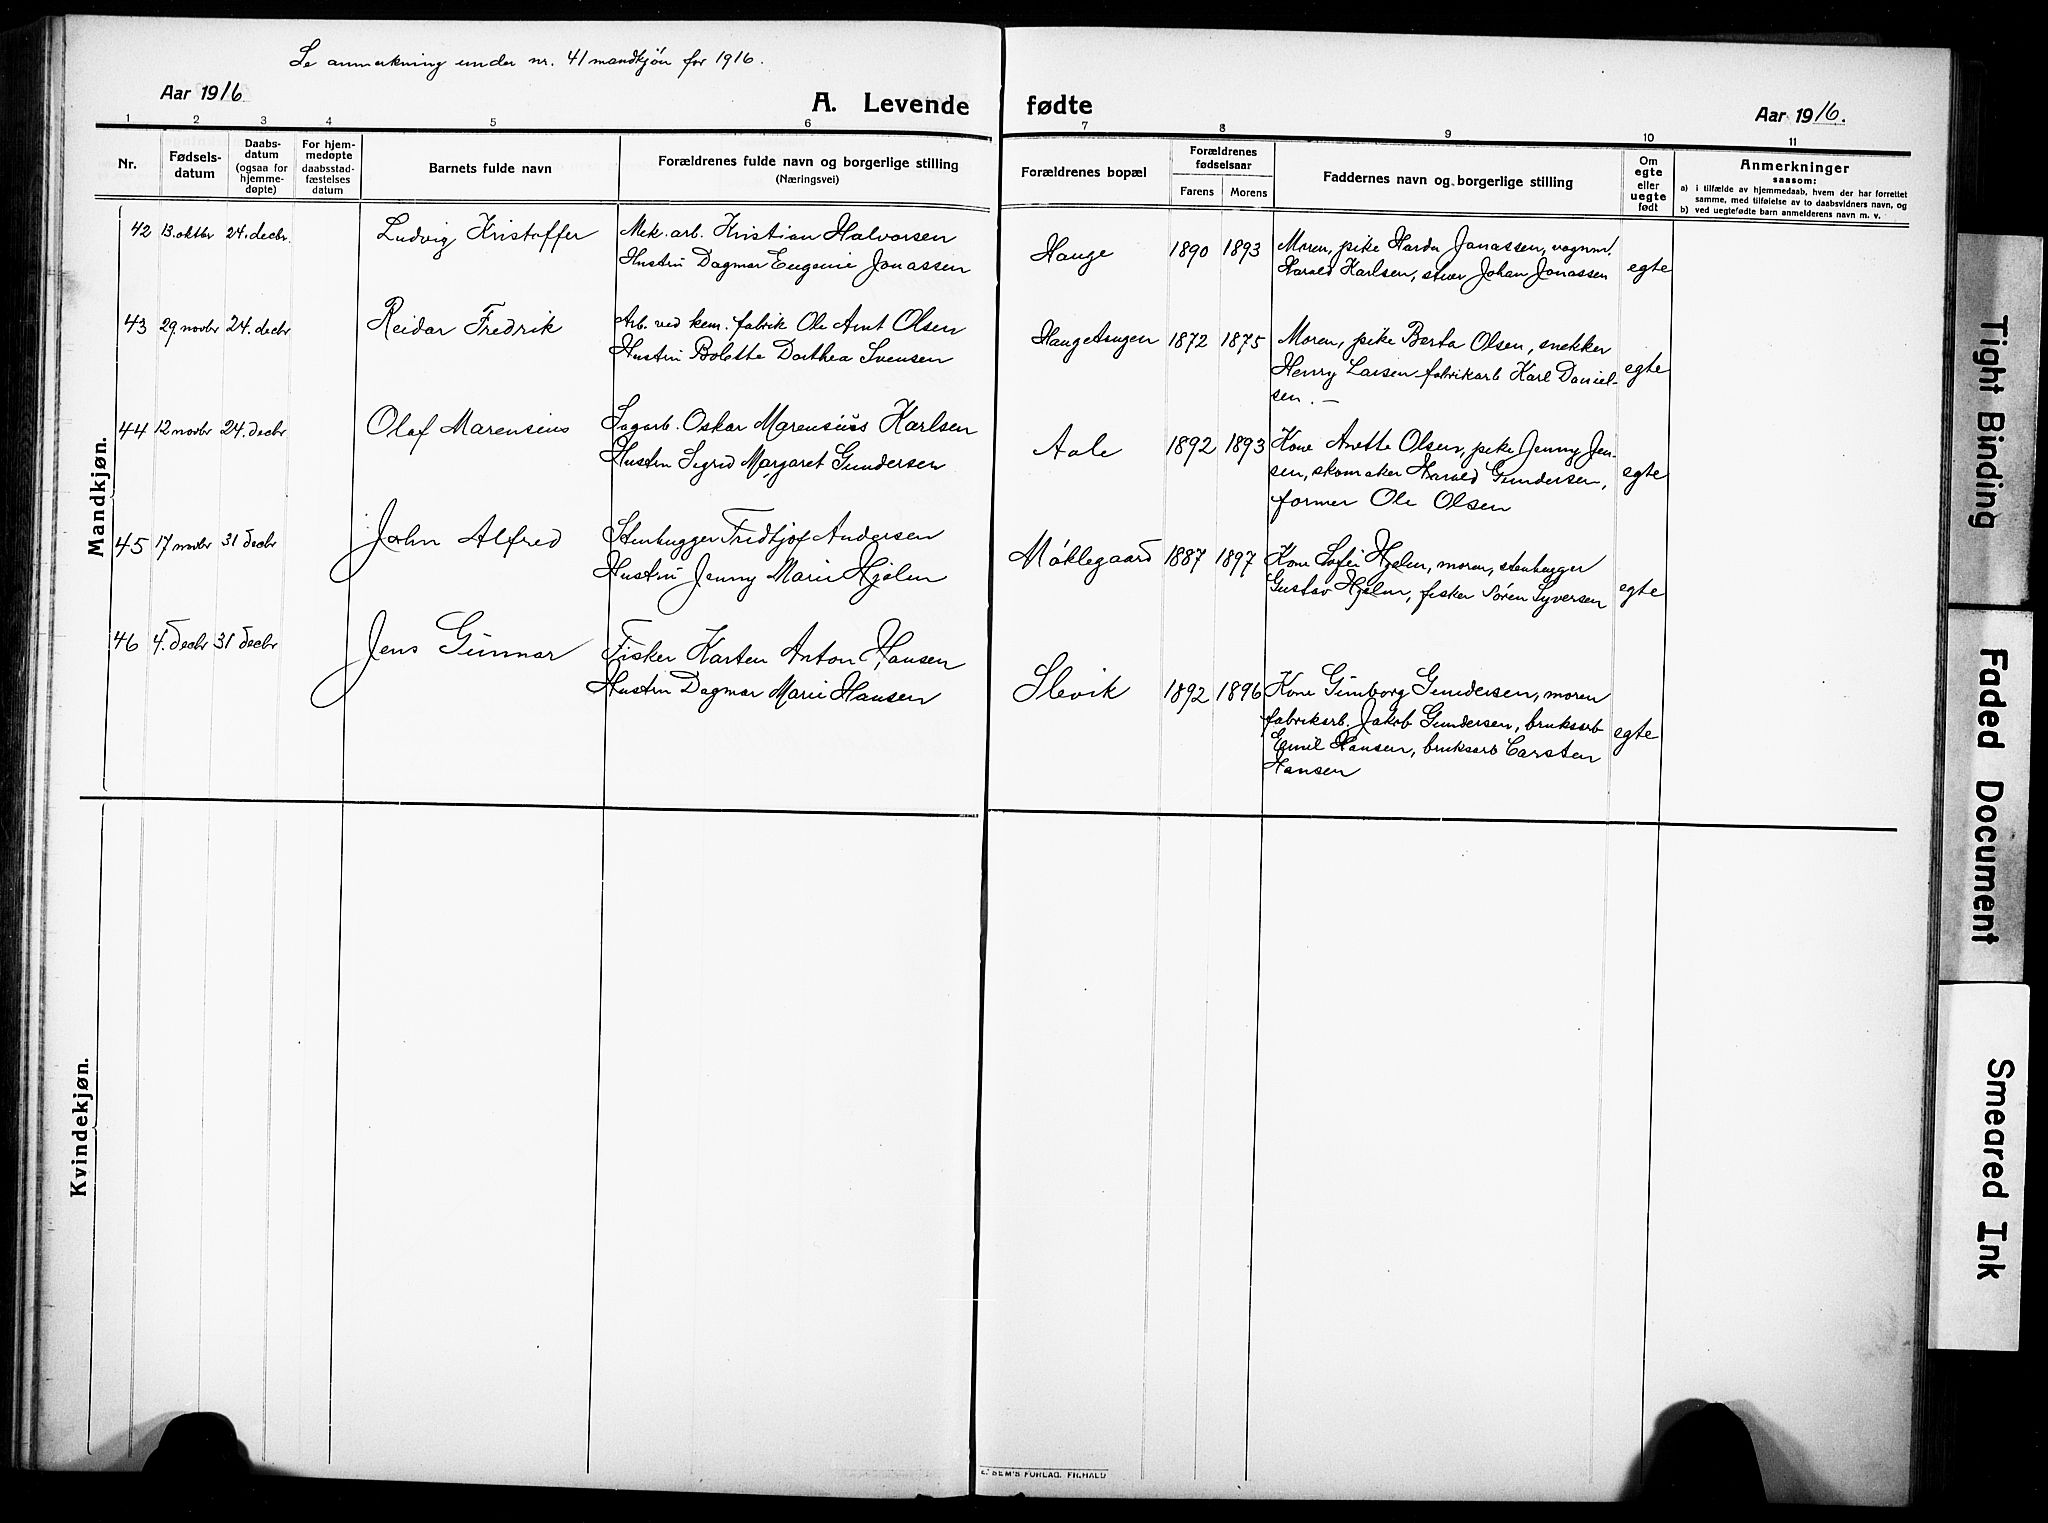 Se anmerkning under nr. 41 mandkjön for 1916.
Aar 1916
A. Levende fødte
Aar 1916.
1 2 3 4 5 6 7 8 9 10 11
Nr.
Fødsels-
datum
Daabs-
datum
(ogsaa for
hjemme-
døpte)
For hjem-
medøpte
daabsstad-
fæstelses
datum
Barnets fulde navn
Forældrenes fulde navn og borgerlige stilling
(Næringsvei)
Forældrenes bopæl
Forældrenes
fødselsaar
Farens Morens
Faddernes navn og borgerlige stilling
Om
egte
eller
uegte
født
Anmerkninger
saasom:
a) i tilfælde av hjemmedaab, hvem der har forrettet
samme, med tilføielse av to daabsvidners navn, og
b) ved uegtefødte barn anmelderens navn m. v.
Mandkjøn.
42 13. oktbr 24. decbr. Ludvig Kristoffer
Mek. arb. Kristian Halvorsen
Hustru Dagmar Eugenie Jonassen
Hauge 1890 1893
Moren, pike Harda Jonassen, vognm.
Harald Karlsen, stuer Johan Jonassen
egte
43 29. novbr 24. decbr Reidar Fredrik
Arb. ved kem. fabrik Ole Arnt Olsen
Hustru Bolette Dorthea Svensen
Haugetangen 1872 1875
Moren, pike Berta Olsen, snekker
Henry Larsen fabrikarb Karl Daniel-
sen. —
egte
44 12 novbr 24. decbr Olaf Marensius
Sagarb. Oskar Marensius Karlsen
Hustru Sigrid Margaret Gundersen
Aale 1892 1893
Kone Anette Olsen, pike Jenny Jen-
sen, skomaker Harald Gundersen,
former Ole Olsen
egte
45 17 novbr 31 decbr John Alfred
Stenhugger Fridtjof Andersen
Hustru Jenny Marie Hjelm
Møklegaard 1887 1897
Kone Sofie Hjelm, moren, stenhugger
Gustav Hjelm, fisker Søren Syversen
egte
46 4. decbr 31 decbr Jens Gunnar
Fisker Karten Anton Hansen
Hustru Dagmar Marie Hansen
Slevik 1892 1896
Kone Gunborg Gundersen, moren
fabrikarb. Jakob Gundersen, bruksarb
Emil Hansen, bruksarb Carsten
Hansen
egte
Kvindekjøn.
SEM'S FORLAG. FR.HALD
Tight Binding
Faded Document
Smeared Ink